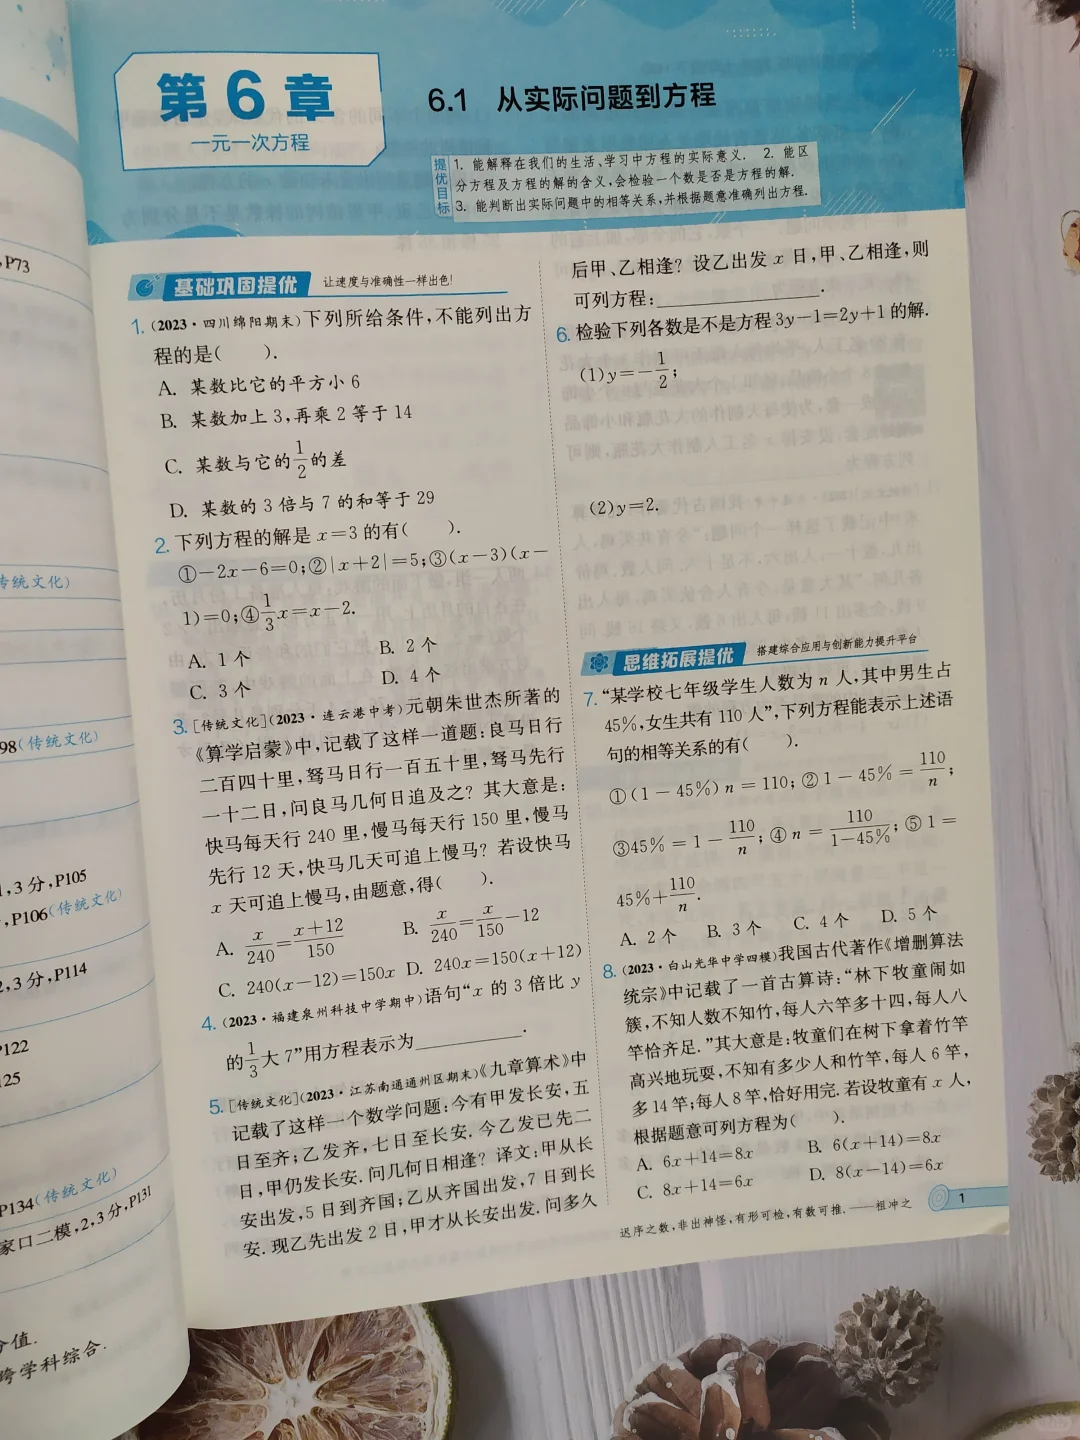 第6章
一元一次方程
6.1 从实际问题到方程
提优目标
1. 能解释在我们的生活、学习中方程的实际意义. 2. 能区
分方程及方程的解的含义,会检验一个数是否是方程的解.
3. 能判断出实际问题中的相等关系,并根据题意准确列出方程.
基础巩固提优 让速度与准确性一样出色!
1. (2023·四川绵阳期末)下列所给条件,不能列出方
程的是( ).
A. 某数比它的平方小6
B. 某数加上3,再乘2等于14
C. 某数与它的1/2的差
D. 某数的3倍与7的和等于29
2. 下列方程的解是x=3的有( ).
①-2x-6=0;②|x+2|=5;③(x-3)(x-
1)=0;④1/3x=x-2.
A. 1个 B. 2个
C. 3个 D. 4个
3. [传统文化](2023·连云港中考)元朝朱世杰所著的
《算学启蒙》中,记载了这样一道题:良马日行
二百四十里,驽马日行一百五十里,驽马先行
一十二日,问良马几何日追及之? 其大意是:
快马每天行240里,慢马每天行150里,慢马
先行12天,快马几天可追上慢马? 若设快马
x天可追上慢马,由题意,得( ).
A. x/240=(x+12)/150 B. x/240=x/150-12
C. 240(x-12)=150x D. 240x=150(x+12)
4. (2023·福建泉州科技中学期中)语句“x的3倍比y
的1/3大7”用方程表示为________.
5. [传统文化](2023·江苏南通通州区期末)《九章算术》中
记载了这样一个数学问题:今有甲发长安,五
日至齐;乙发齐,七日至长安. 今乙发已先二
日,甲仍发长安. 问几何日相逢? 译文:甲从长
安出发,5日到齐国;乙从齐国出发,7日到长
安. 现乙先出发2日,甲才从长安出发. 问多久
后甲、乙相逢? 设乙出发x日,甲、乙相逢,则
可列方程:____________.
6. 检验下列各数是不是方程3y-1=2y+1的解.
(1)y=-1/2;
(2)y=2.
思维拓展提优 搭建综合应用与创新能力提升平台
7. “某学校七年级学生人数为n人,其中男生占
45%,女生共有110人”,下列方程能表示上述语
句的相等关系的有( ).
①(1-45%)n=110; ②1-45%=110/n;
③45%=1-110/n; ④n=110/(1-45%); ⑤1=
45%+110/n.
A. 2个 B. 3个 C. 4个 D. 5个
8. (2023·白山光华中学四模)我国古代著作《增删算法
统宗》中记载了一首古算诗:“林下牧童闹如
簇,不知人数不知竹,每人六竿多十四,每人八
竿恰齐足.”其大意是:牧童们在树下拿着竹竿
高兴地玩耍,不知有多少人和竹竿,每人6竿,
多14竿;每人8竿,恰好用完. 若设牧童有x人,
根据题意可列方程为( ).
A. 6x+14=8x B. 6(x+14)=8x
C. 8x+14=6x D. 8(x-14)=6x
迟序之数,非出神怪,有形可检,有数可推.——祖冲之
1
,P73
传统文化)
98(传统文化)
,3分,P105
,P106(传统文化)
2,3分,P114
P122
125
P134(传统文化)
家口二模,2,3分,P131
值.
跨学科综合.